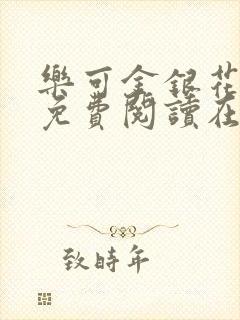 樂可金銀花
免費閱讀在
致時年